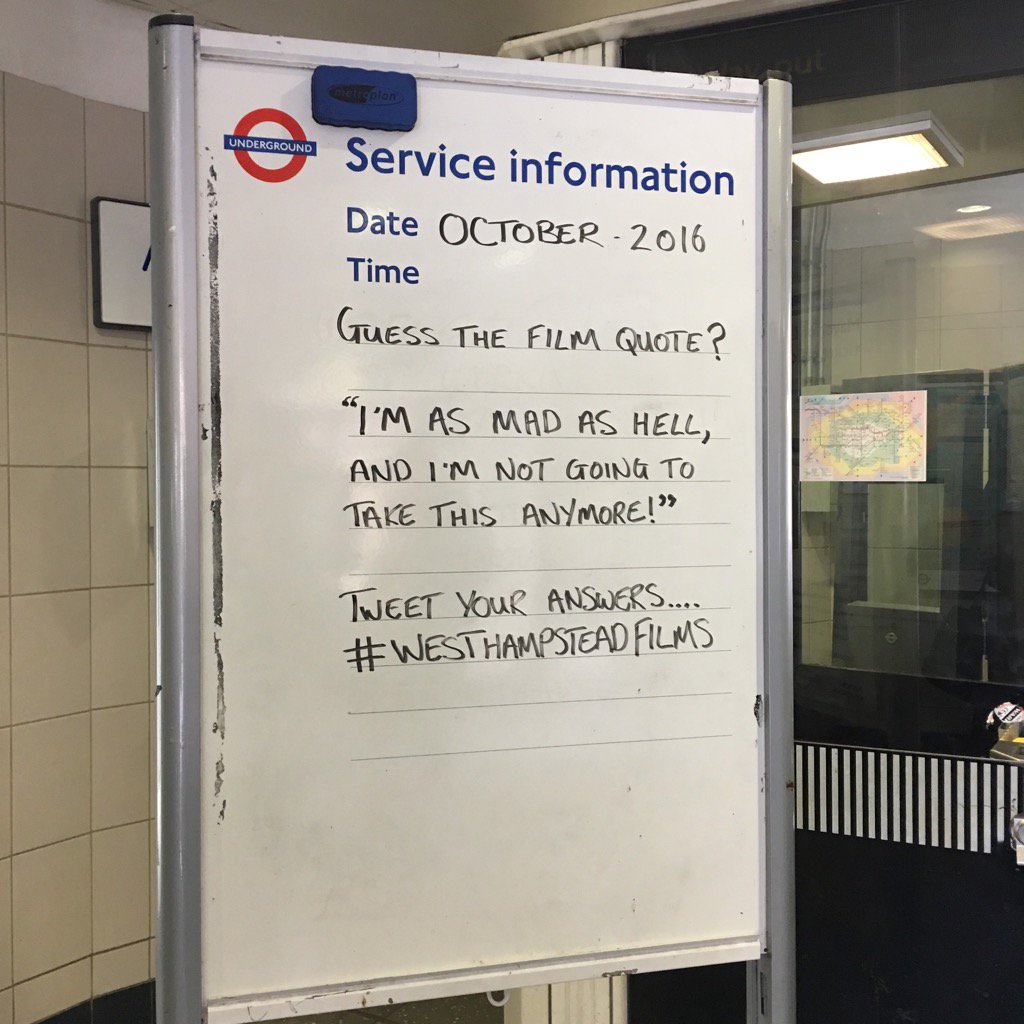 metroplan
UNDERGROUND
Service information
Date OCTOBER - 2016
Time
GUESS THE FILM QUOTE?
"I'M AS MAD AS HELL,
AND I'M NOT GOING TO
TAKE THIS ANYMORE!"
TWEET YOUR ANSWERS....
#WESTHAMPSTEADFILMS